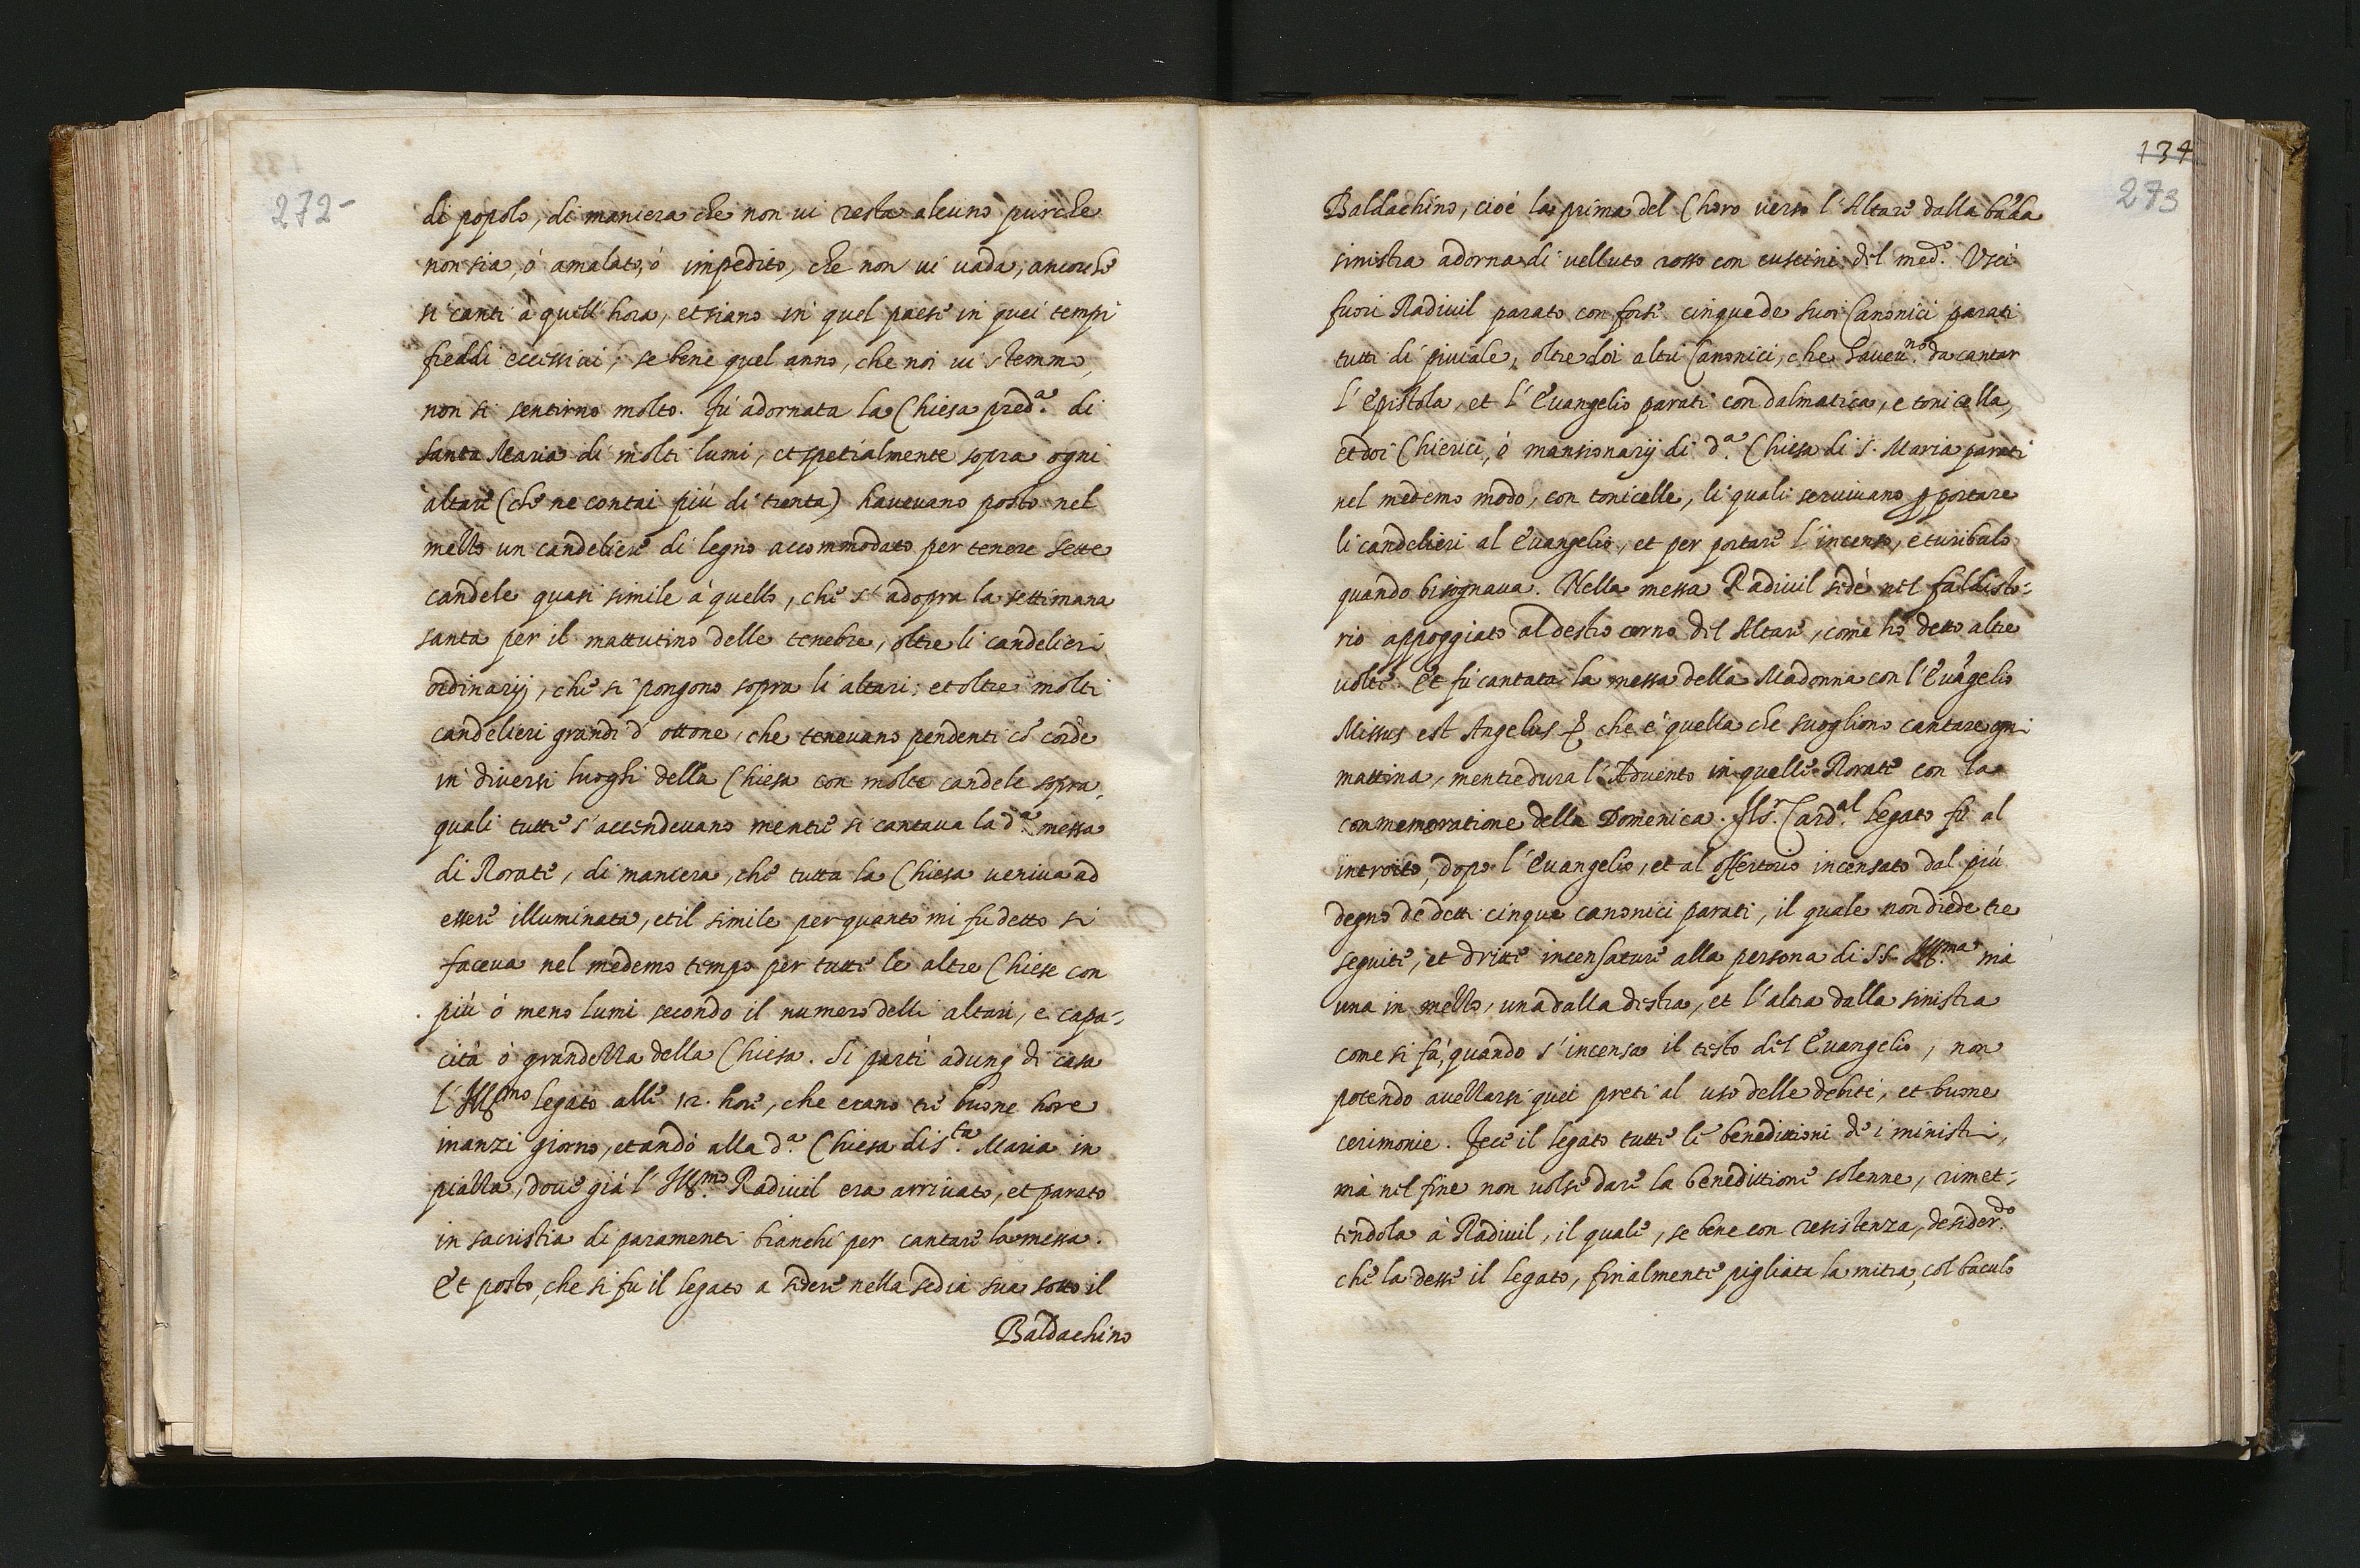 272
di popolo, di maniera che non ui resta alcuno purche
non sia, ò amalato, ò impedito, che non ui uada, ancorche
si canti à quell' hora, et siano in quel paese in quei tempi
freddi eccessiui, se bene quel anno, che noi ui stemmo,
non si sentirno molto. Fù adornata la Chiesa pred.ª di
santa Maria di molti lumi, et spetialmente sopra ogni
altare (che ne contai più di trenta) haueuano posto nel
mezzo un candeliere di legno accommodato per tenere sette
candele quasi simile à quello, che s' adopra la settimana
santa per il mattutino delle tenebre, oltre li candelieri
ordinarij, che si pongono sopra li altari, et oltre molti
candelieri grandi d' ottone, che teneuano pendenti cõ corde
in diuersi luoghi della Chiesa con molte candele sopra,
quali tutte s' accendeuano mentre si cantaua la d.ª messa
di Rorate, di maniera, che tutta la Chiesa ueniua ad
essere illuminata, et il simile per quanto mi fu detto si
faceua nel medemo tempo per tutte le altre Chiese con
più ò meno lumi secondo il numero delli altari, e capa-
cità ò grandezza della Chiesa. Si partì adunq di casa
l' Ill.mo legato alle 12. hore, che erano tre buone hore
inanzi giorno, et andò alla d.ª Chiesa di S.ta Maria in
piazza, doue già l' Ill.mo Radiuil era arriuato, et parato
in sacristia di paramenti bianchi per cantare la messa.
Et posto, che si fu il legato a sedere nella sedia sua sotto il
Baldachino
134
273
Baldachino, cioè la prima del Choro uerso l' Altare dalla bãda
sinistra adorna di uelluto rosso con cuscini del med.º Uscì
fuori Radiuil parato con forse cinque de suoi Canonici parati
tutti di piuiale, oltre doi altri Canonici, che haueu.no da cantar
l' Epistola, et l' Euangelio parati con dalmatica, e tonicella,
et doi Chierici, ò mansionarij di d.ª Chiesa di S. Maria parati
nel medemo modo, con tonicelle, li quali seruiuano ꝑ portare
li candelieri al Euangelio, et per portare l' incenso, e turibulo
quando bisognaua. Nella messa Radiuil sedè nel faldisto-
rio appoggiato al destro corno del Altare, come hò detto altre
uolte. Et fù cantata la messa della Madonna con l' Euãgelio
Missus est Angelus &c che è quella che sogliono cantare ogni
mattina, mentre dura l' Aduento in quelle Rorate con la
commemoratione della Domenica. Ill.r Card.al legato fù al
introito, dopo l' Euangelio, et al offertorio incensato dal più
degno de detti cinque canonici parati, il quale non diede tre
seguite, et dritte incensature alla persona di S.S. Ill.ma mà
una in mezzo, una dalla destra, et l' altra dalla sinistra
come si fà, quando s' incensa il testo del Euangelio, non
potendo auezzarsi quei preti al uso delle debite, et buone
cerimonie. Fece il legato tutte le benedittioni de i ministri,
mà nel fine non uolse dare la benedittione solenne, rimet-
tendola à Radiuil, il quale, se bene con resistenza, desider.do
che la desse il legato, finalmente pigliata la mitra, col baculo